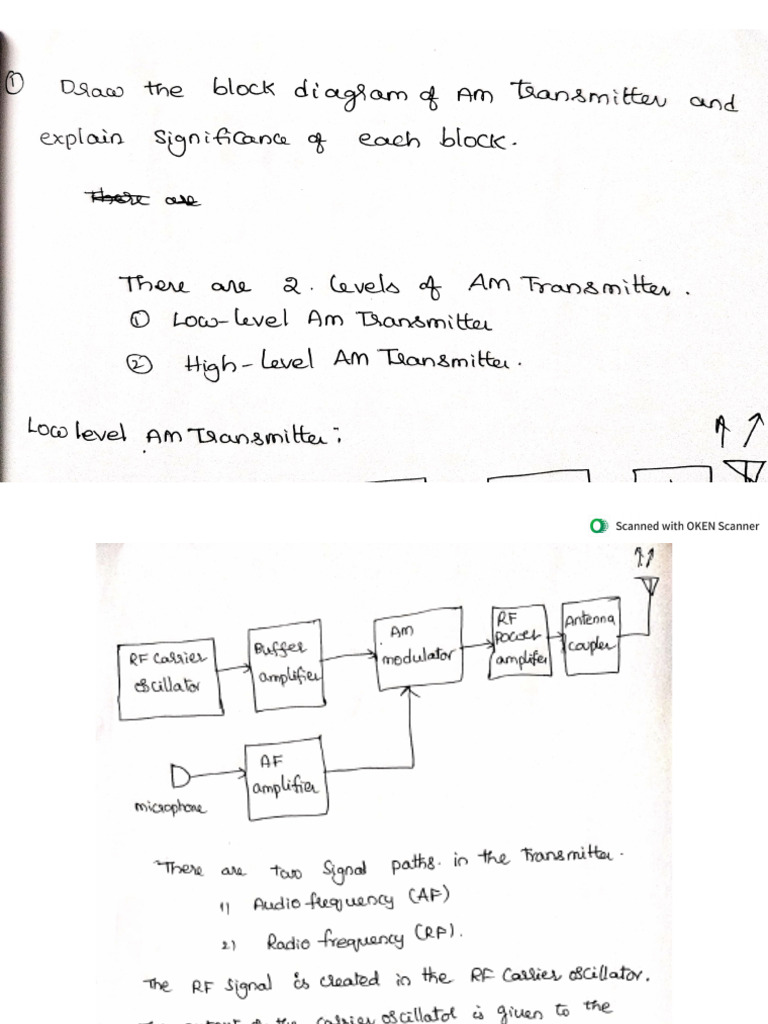 ① Draw the block diagram of AM transmitter and
explain significance of each block.
There are
There are 2. levels of AM Transmitter.
① Low-level AM Transmitter
② High-Level AM Transmitter.
Low level AM Transmitter:
Scanned with OKEN Scanner
RF Carrier
oscillator
Buffer
amplifier
Am
modulator
RF
power
amplifer
Antenna
coupler
microphone
AF
amplifier
There are two signal paths. in the Transmitter.
1) Audio frequency (AF)
2) Radio frequency (RF).
The RF signal is created in the RF Carrier oscillator.
The output of the carrier oscillator is given to the